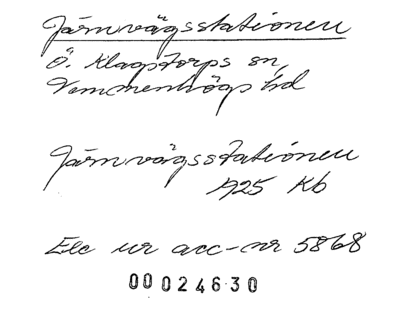 Järnvägsstationen
Ö. Klagstorps sn,
Vemmenhögs hd
Järnvägsstationen
1925 Kb
Etc ur acc-nr 5868
00024630